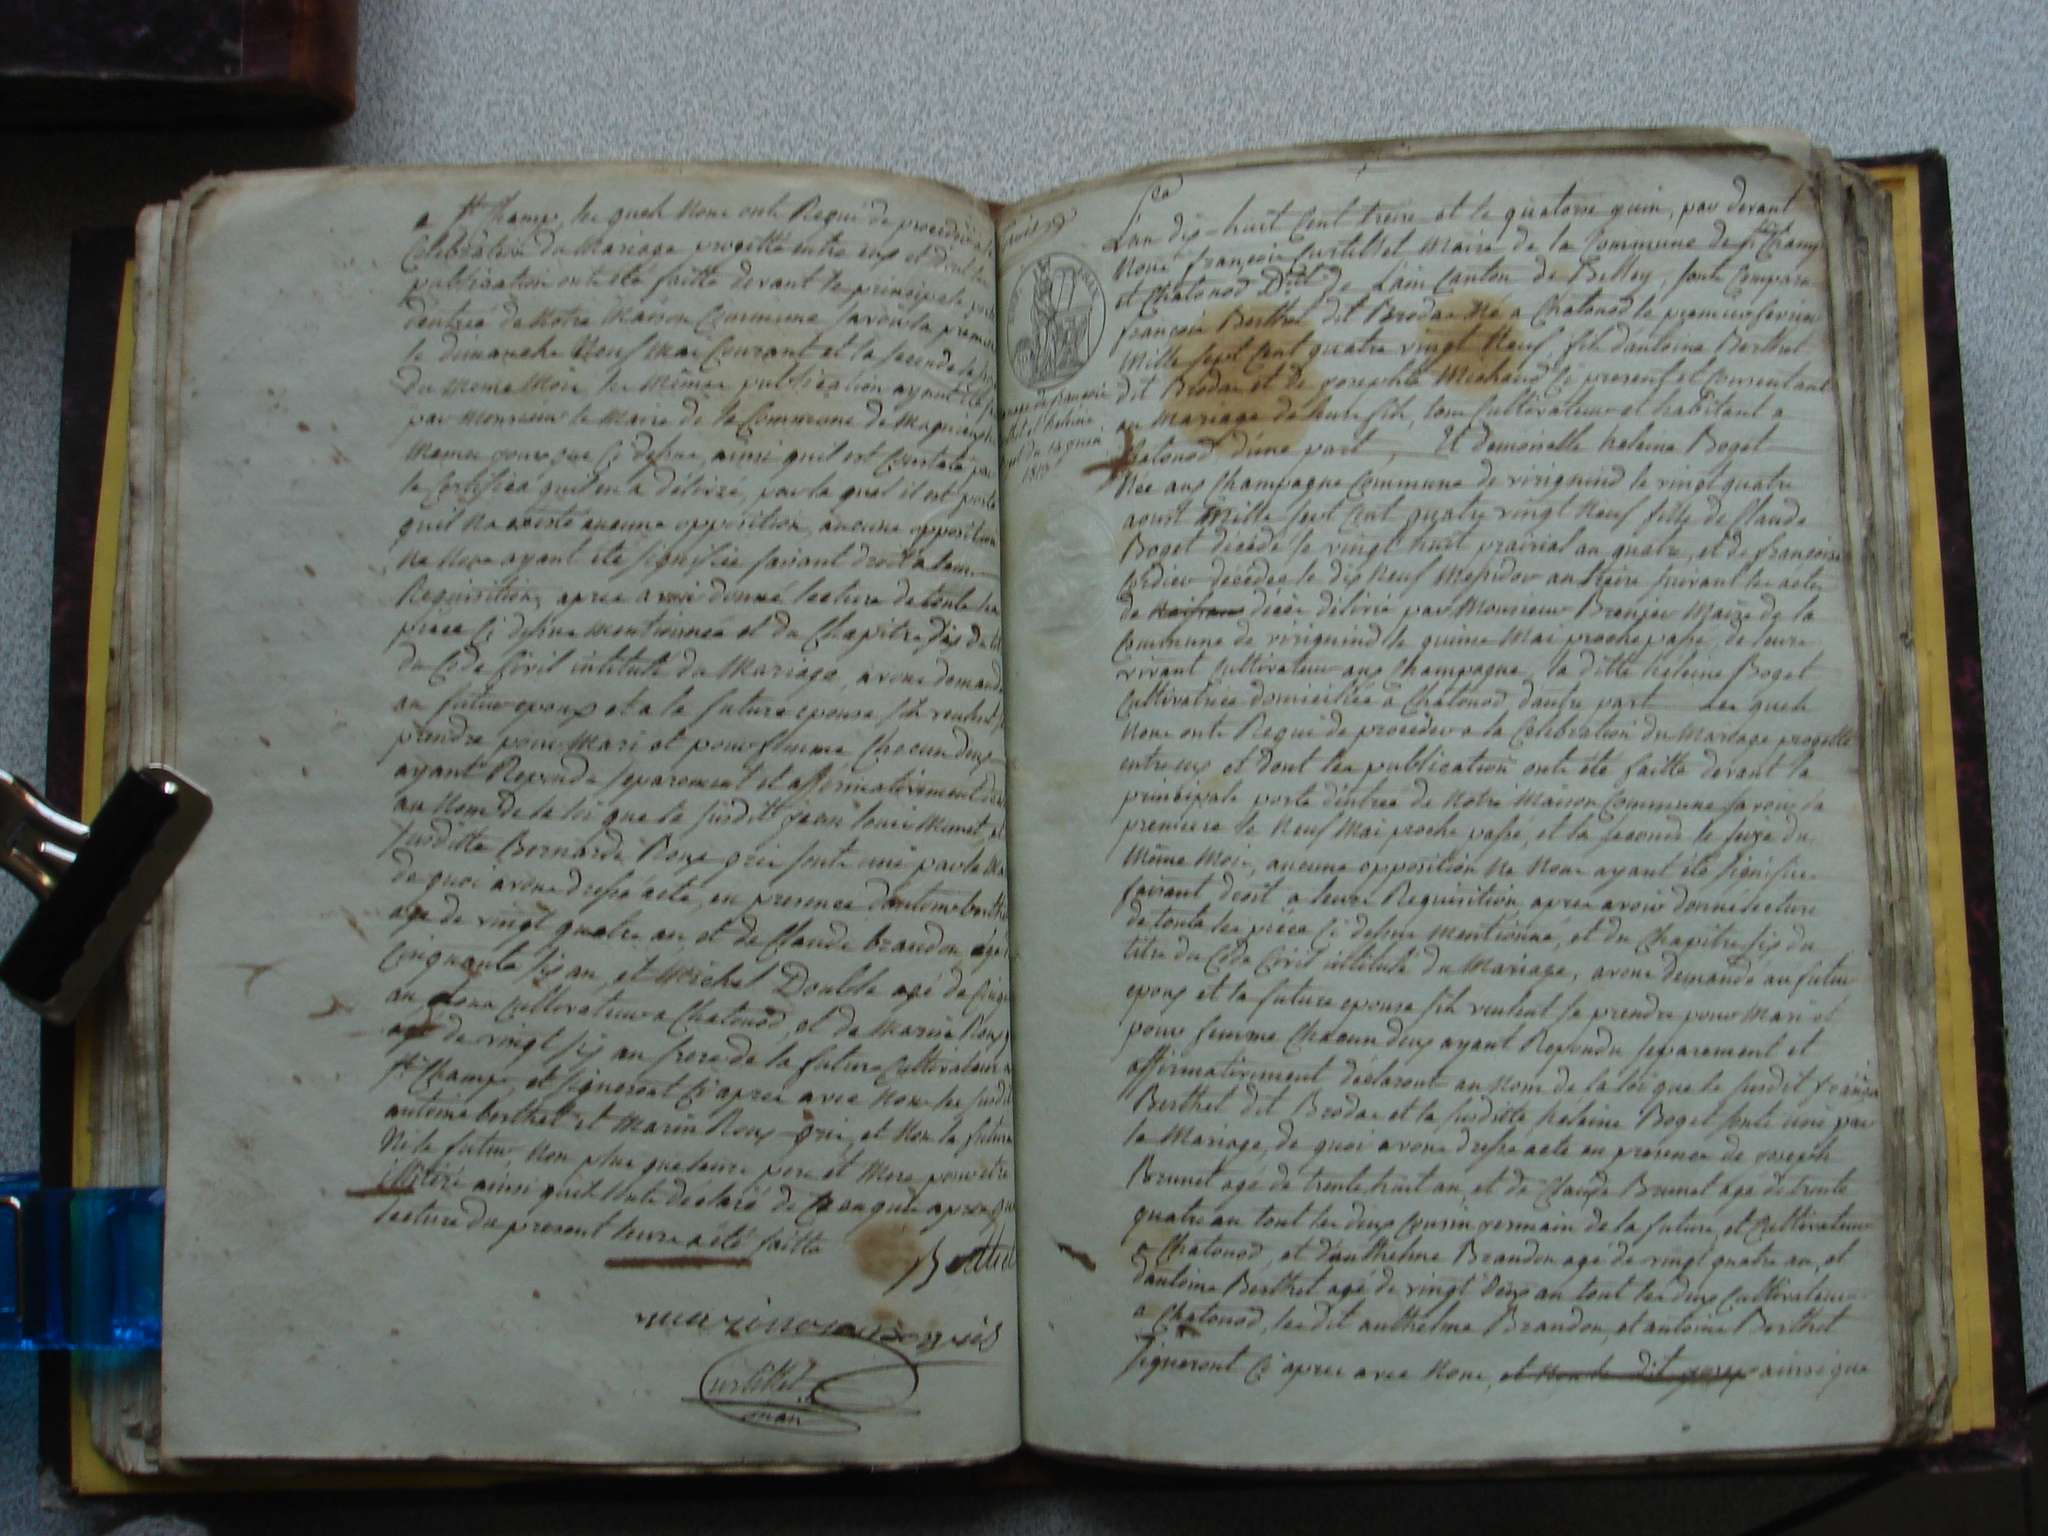 a St Champ, les quels nous ont Requi de procéder a la
Celebration du Mariage progetté entre eux et dont les
publication ont été faitte devant la principale porte
dentréé de Notre Maison Commune savoir la première
le dimanche Neuf Mai Courant et la seconde le
du meme Moi, les mêmes publication ayant été
par Monsieur le Maire de la Commune de
Memes jours que Ci dessus, ainsi quil est Constaté par
le Certificat quil en a délivré, par le quel il est porté
quil na existé aucune opposition, aucune opposition
Ne Nous ayant été signifiée faisant droit a leur
Requisition, apres avoir donné lecture de toute les
piece Ci dessus mentionnéé et du Chapitre six du
du Code Civil intitulé du Mariage, avons demandé
au futur epoux et a la future epouse sils veulent se
prendre pour Mari et pour femme Chacun deux
ayant Repondu separement et affirmativement
au Nom de la loi que le susdit jean louis Mimet, et
susditte Bernarde Roux gris sont uni par le
de quoi avons dressé acte, en presence dantoine berthet
agé de vingt quatre an, et de Claude brandon agé
Cinquante six an, et Michel Double agé de
an, tous Cultivateur a Chatonod, et de Marin Roux
agé de vingt six an frere de la future Cultivateur a
St Champ, et signeront Ci apres avec Nous les susdit
antoine berthet et Marin Roux gris, et Non la future
Ni le futur, Non plus que leurs pere et Mere pour etre
illitéré ainsi quils lont déclaré de Ce enquis apres que
lecture du present leurs a été faitte
Berthet
marin roux gris
Curtillet
Lan dix-huit Cent treize et le quatorze juin, par devant
Nous françois Curtillet Maire de la Commune de St Champ
et Chatonod Dt de Lain Canton de Belley, sont Comparu
françois Berthet dit Brodas Né a Chatonod le premier fevrier
Mille sept Cent quatre vingt Neuf, fils dantoine Berthet
dit Brodas et de josephte Michaud Ci present et Consentant
au Mariage de leurs fils, tous Cultivateur et habitant a
Chatonod dune part, Et demoiselle heleine Boget
Née aux Champagne Commune de virignind le vingt quatre
aoust Mille sept Cent quatre vingt Neuf fille de Claude
Boget décédé le vingt huit prairial an quatre, et de françoise
Cordier décédée le dix Neuf Messidor an treize suivant les actes
de décès délivré par Monsieur Brenjer Maire de la
Commune de virignind le quinze Mai proche passé, de leurs
vivant Cultivateur aux Champagne, la ditte heleine Boget
Cultivatrice domiciliée a Chatonod dautre part Les quels
Nous ont Requi de proceder a la Celebration du Mariage progetté
entre eux et dont les publication ont été faitte devant la
principale porte dentréé de Notre Maison Commune savoir la
premiere le Neuf Mai proche passé, et la seconde le seize du
Même Moi, aucune opposition Ne Nous ayant été signifiée
faisant droit a leurs Requisition apres avoir donné lecture
de toute les pièce Ci dessus Mentionné, et du Chapitre six du
titre du Code Civil intitulé du Mariage, avons demandé au futur
epoux et la future epouse sils veulent se prendre pour Mari et
pour femme Chacun deux ayant Repondu separement et
affirmativement déclarons au Nom de la loi que le susdit françois
Berthet dit Brodas et la susditte heleine Boget sont uni par
le Mariage, de quoi avons dressé acte en presence de joseph
Brunet agé de trente huit an, et de Claude Brunet agé de trente
quatre an tout les deux Cousin germain de la future, et Cultivateur
a Chatonod, et danthelme Brandon agé de vingt quatre an, et
dantoine Berthet agé de vingt deux an tout les deux Cultivateur
a Chatonod, les dit anthelme Brandon, et antoine Berthet
signeront Ci apres avec Nous, et Non le dit joseph ainsi que